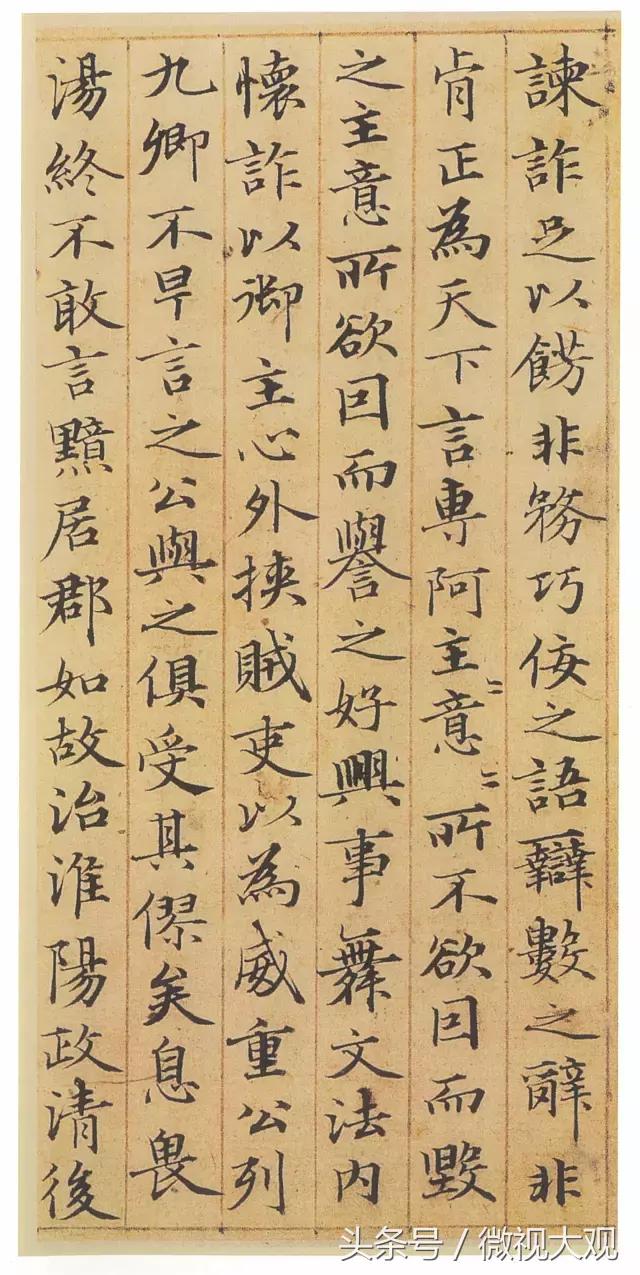 諫詐足以餝非務巧佞之語辯數之辭非
肯正為天下言專阿主意〻所不欲因而毀
之主意所欲因而譽之好興事舞文法內
懷詐以御主心外挾賊吏以為威重公列
九卿不早言之公與之俱受其僇矣息畏
湯終不敢言黯居郡如故治淮陽政清後
头条号 / 微视大观